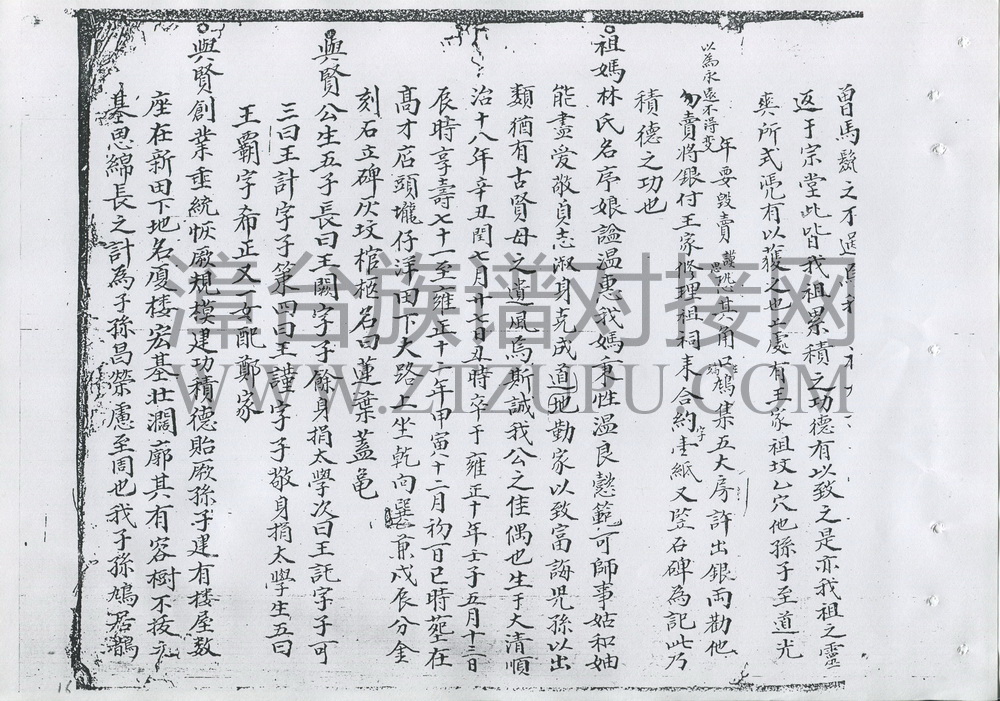 返于宗堂此皆我祖累積之功德有以致之是亦我祖之靈
爽所式凴有以獲之也一處有王家祖坟乙穴他孫子至道光
年要毀賣 恐其角 鳩集五大房許出銀兩勸他
以為永遠不得变
勿賣將銀付王家修理祖祠耒合約字壹紙又竪石碑為記此乃
積德之功也
祖媽林氏名序娘諡温惠我媽秉性温良懿範可師事姑和妯
能盡爱敬貞志淑身克成道地勤家以致富誨児孫以出
類猶有古賢母之遺風焉斯誠我公之佳偶也生于大清順
治十八年辛丑閏七月廿七日丑時卒于雍正十年壬子五月十三日
辰時享壽七十一至雍正十一年甲寅十二月初一日巳時塟在
髙才店頭壠仔洋田下大路上坐乾向巽兼戌辰分金
刻石立碑灰坟棺柩名曰蓮葉蓋黾
興賢公生五子長曰王闕字子餘身捐太學次曰王託字子可
三曰王計字子第四曰王謹字子敬身捐太學生五曰
王霸字希正又一女配鄭家
興賢創業垂統恢厥規模建功積德貽厥孫子建有楼屋数
座在新田下地名厦楼宏基壮濶廓其有容樹不拔之
基思綿長之計為子孫昌榮慮至周也我子孫鳩居鵲
漳台族谱对接网
WWW.ZTZUPU.COM